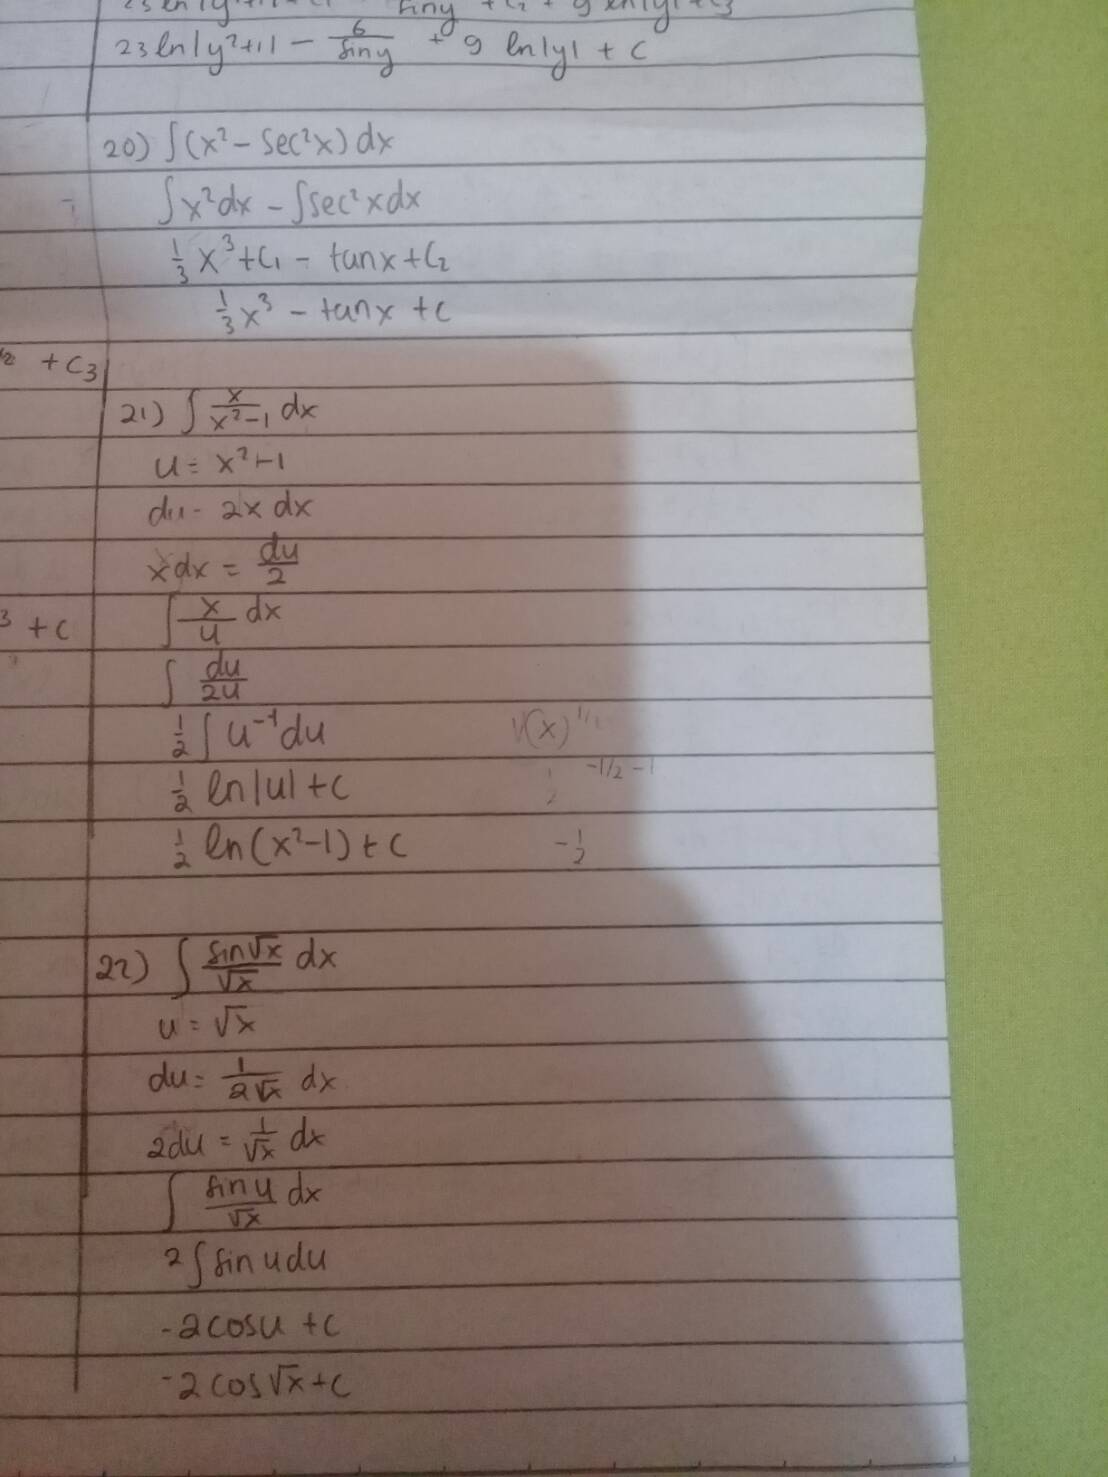 23 ln|y²+1| - 6/siny + 9 ln|y| + C
20) ∫(x² - sec²x) dx
∫x²dx - ∫sec²xdx
1/3 x³ + C₁ - tanx + C₂
1/3 x³ - tanx + C
+ C₃
21) ∫ x/(x²-1) dx
u = x²-1
du = 2x dx
xdx = du/2
∫ x/u dx
³ + C
∫ du/2u
1/2 ∫ u⁻¹ du
1/2 ln|u| + C
-1/2 -1
1/2 ln(x²-1) + C
-1/2
22) ∫ sin√x/√x dx
u = √x
du = 1/(2√x) dx
2du = 1/√x dx
∫ sin u/√x dx
2∫ sin u du
-2cosu + C
-2cos√x + C